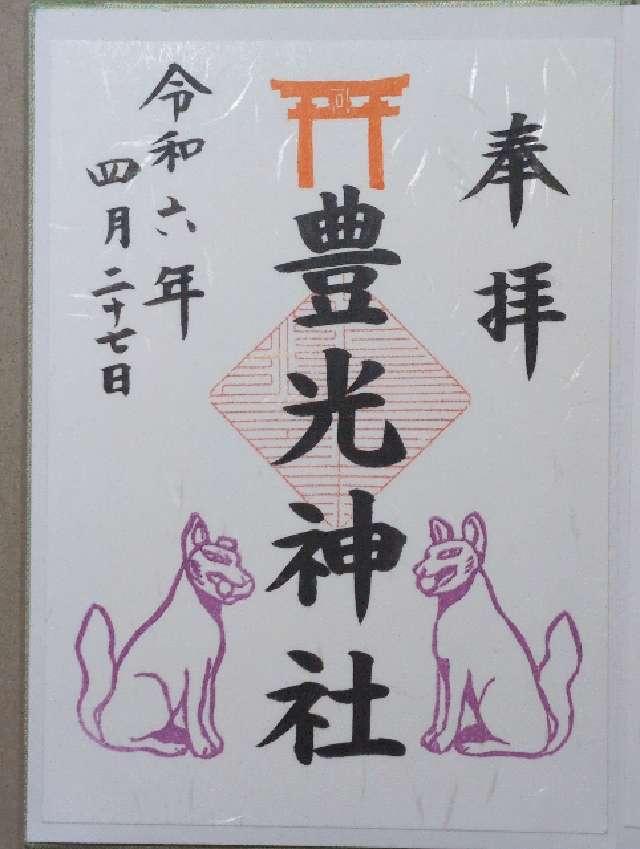 奉拝
豊光神社
令和六年
四月二十七日